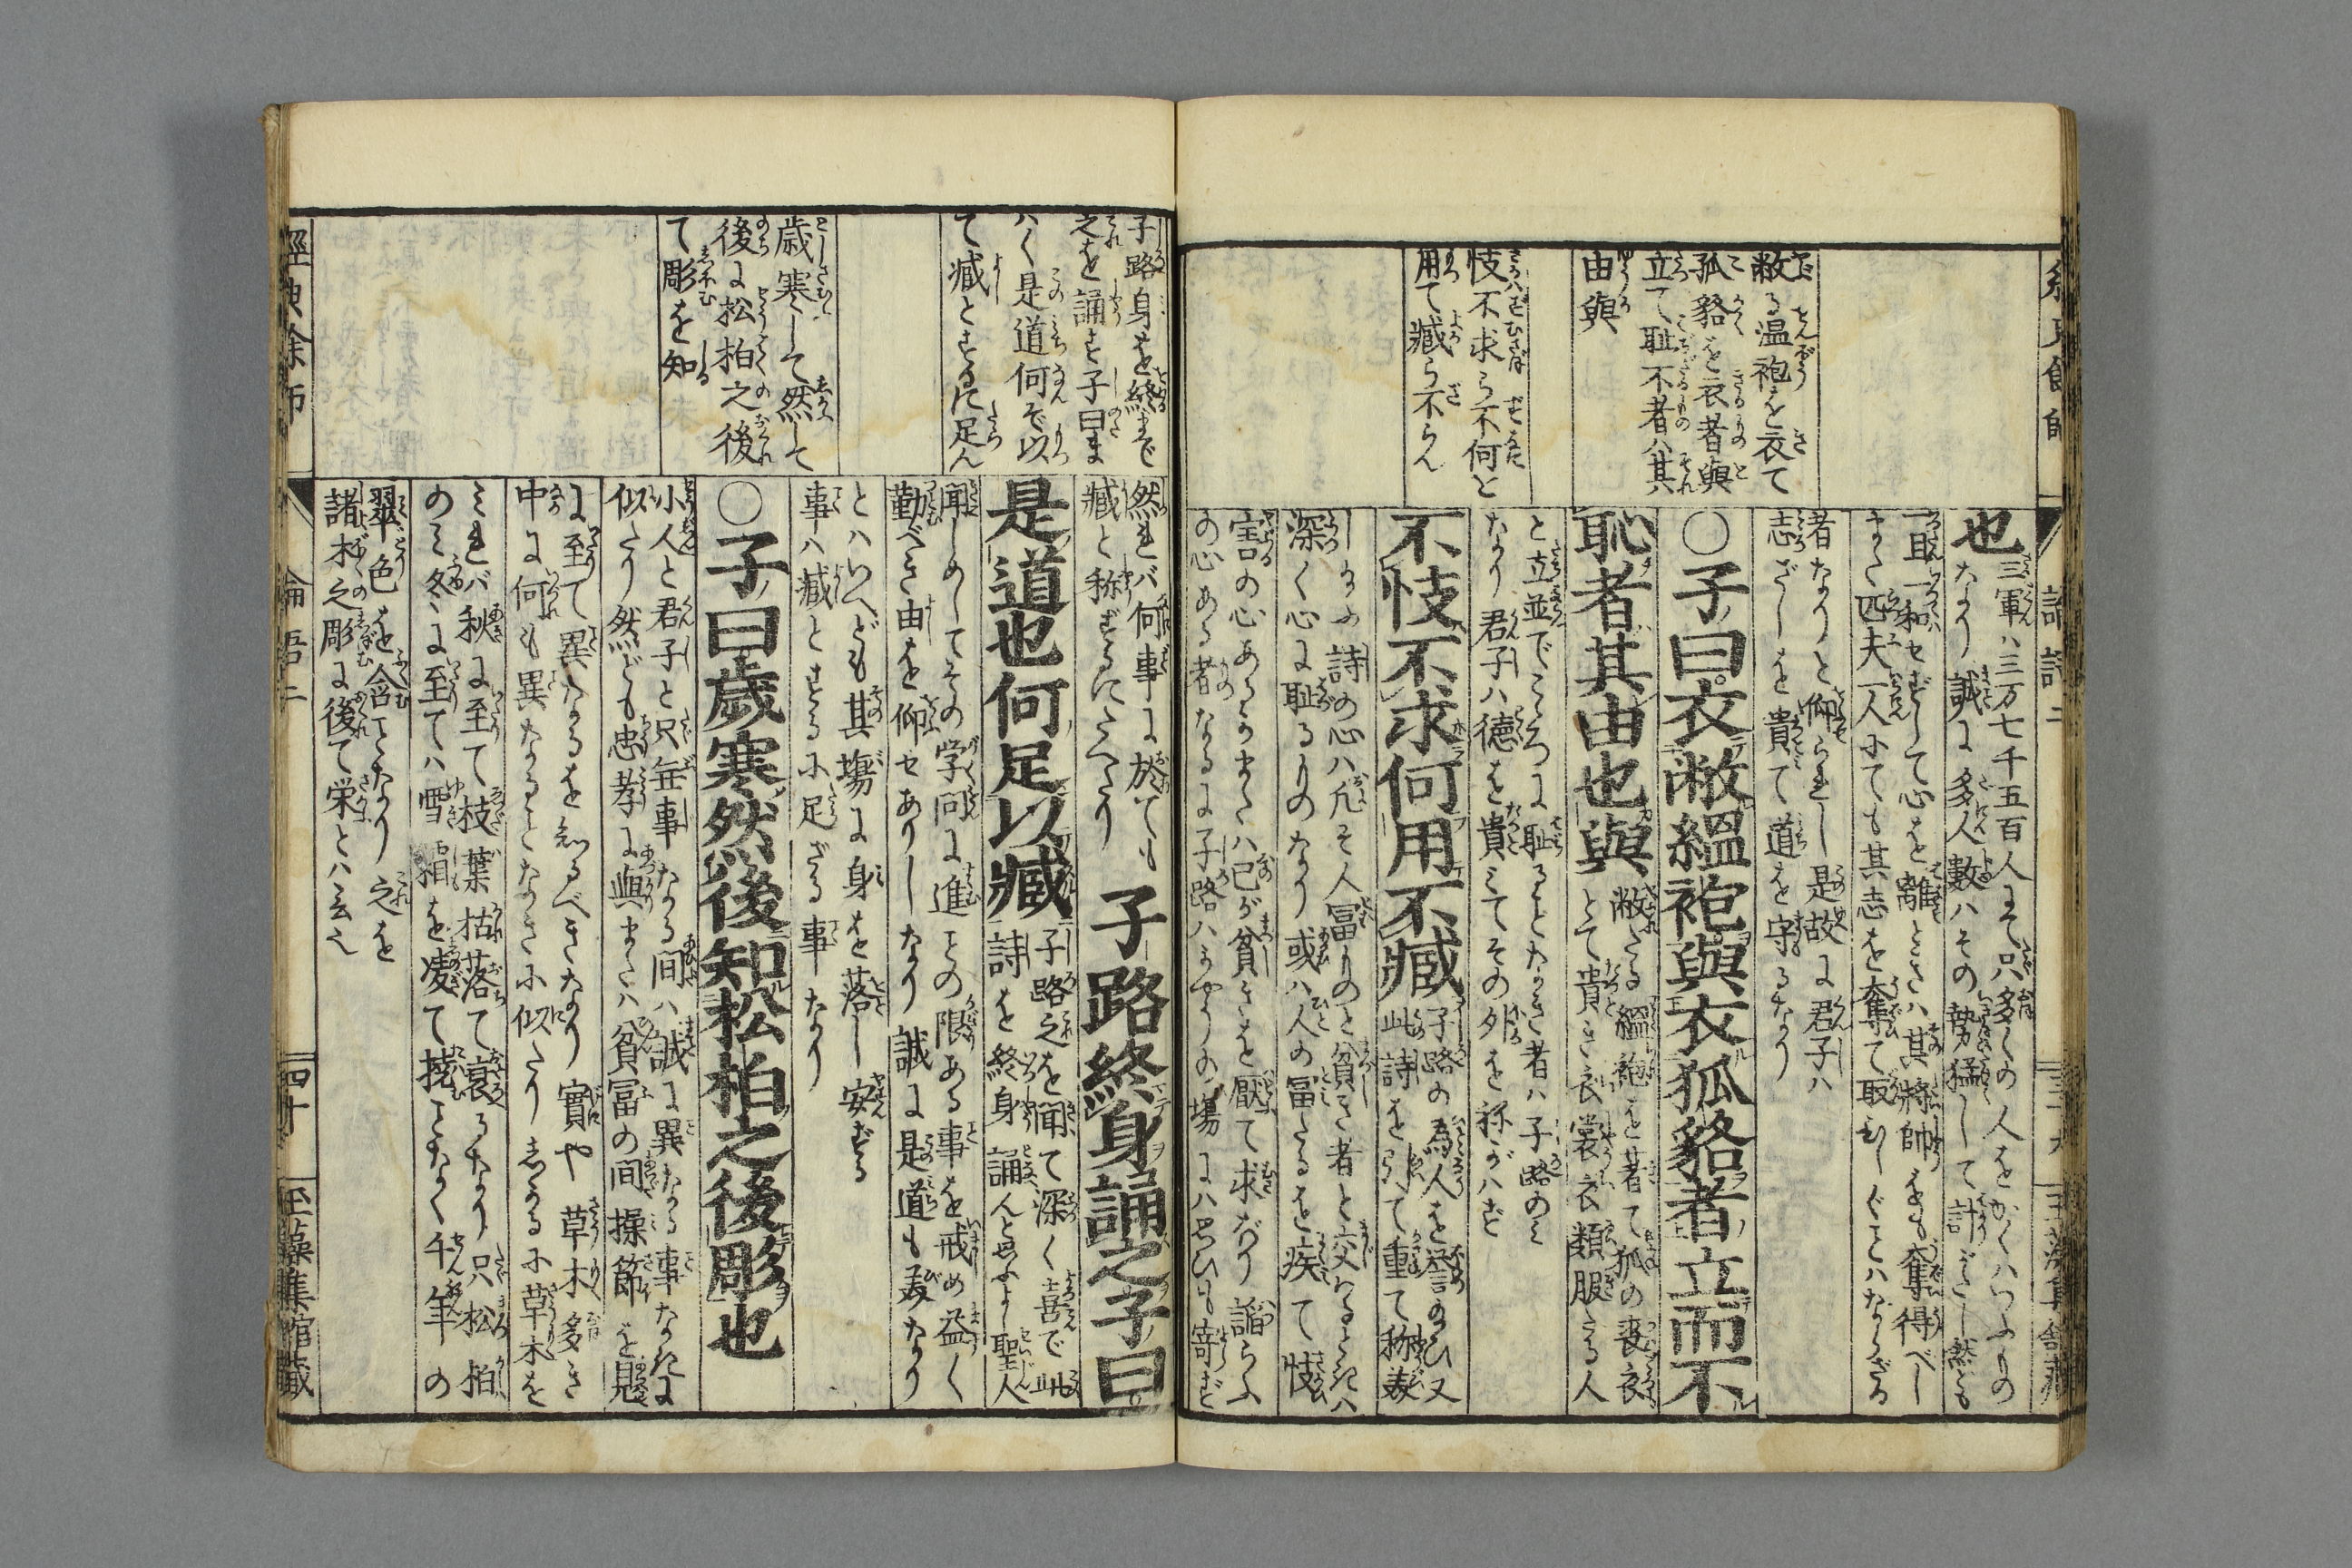 敝る温袍を衣て
孤貉を衣者與
立て恥不者ハ其
由與
忮不求ら不何と
用て臧ら不らん
也
三軍ハ三万七千五百人にて只多くの人をかくハいふもの
なり誠に多人數ハその勢猛して計がたし然ども
一旦一和せずして心を離ときハ其將帥をも奪得べし
また匹夫一人にても其志を奪て取ひしぐことハならざる
者なりと仰られし是故に君子ハ
志ざしを貴て道を守るなり
〇子曰衣敝縕袍與衣狐貉者立而不
恥者其由也與
敝たる縕袍を著て狐の裘衣
とて貴き衣裳衣類服たる人
と立並でこゝろに恥ることなき者ハ子路のミ
なり君子ハ徳を貴ミてその外を称がハず
不忮不求何用不臧
子路の為人を誉のひ又
此詩を引て重て称美
し給ふ詩の心ハ凡そ人冨ものと貧き者と交わるときハ
深く心に恥るものなり或ハ人の冨たるを疾て忮
害の心あるかまたハ己が貧きを厭て求がり諂らふ
の心ある者なるに子路ハかやうの場にハ思ひも寄ず
子路身を終まで
之を誦す子曰ま
ハく是道何ぞ以
て臧とするに足ん
歳寒して然して
後に松柏之後
て彫を知
然れバ何事に於ても
臧と称ずるにたへたり
子路終身誦之子曰
是道也何足以臧
子路之を聞て深く喜で此
詩を終身誦んと思ふよし聖人
聞しめしてその学問に進ことの限ある事を戒め益く
勤べき由を仰せありしなり誠に是道も美なり
とハいへども其場に身を落し安ずる
事ハ臧とするに足ざる事なり
〇子曰歳寒然後知松柏之後彫也
小人と君子と只無事なる間ハ誠に異なる事なきに
似たり然ども忠孝に與またハ貧冨の間操節を見
に至て異なるを知るべきなり實や草木多き
中に何も異なることなきに似たりしかるに草木を
ミれバ秋に至て枝葉枯落て衰るなり只松柏
のミ冬に至てハ雪霜を凌て撓ことなく千年の
翠色を含ことなり之を
諸木之彫に後て栄とハ云也
經典餘師
論語二
四十